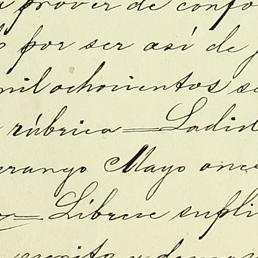 prover de confo
por ser así de j
mil ochocientos se
rúbrica — Ladid
erango Mayo once
Líbrese supli